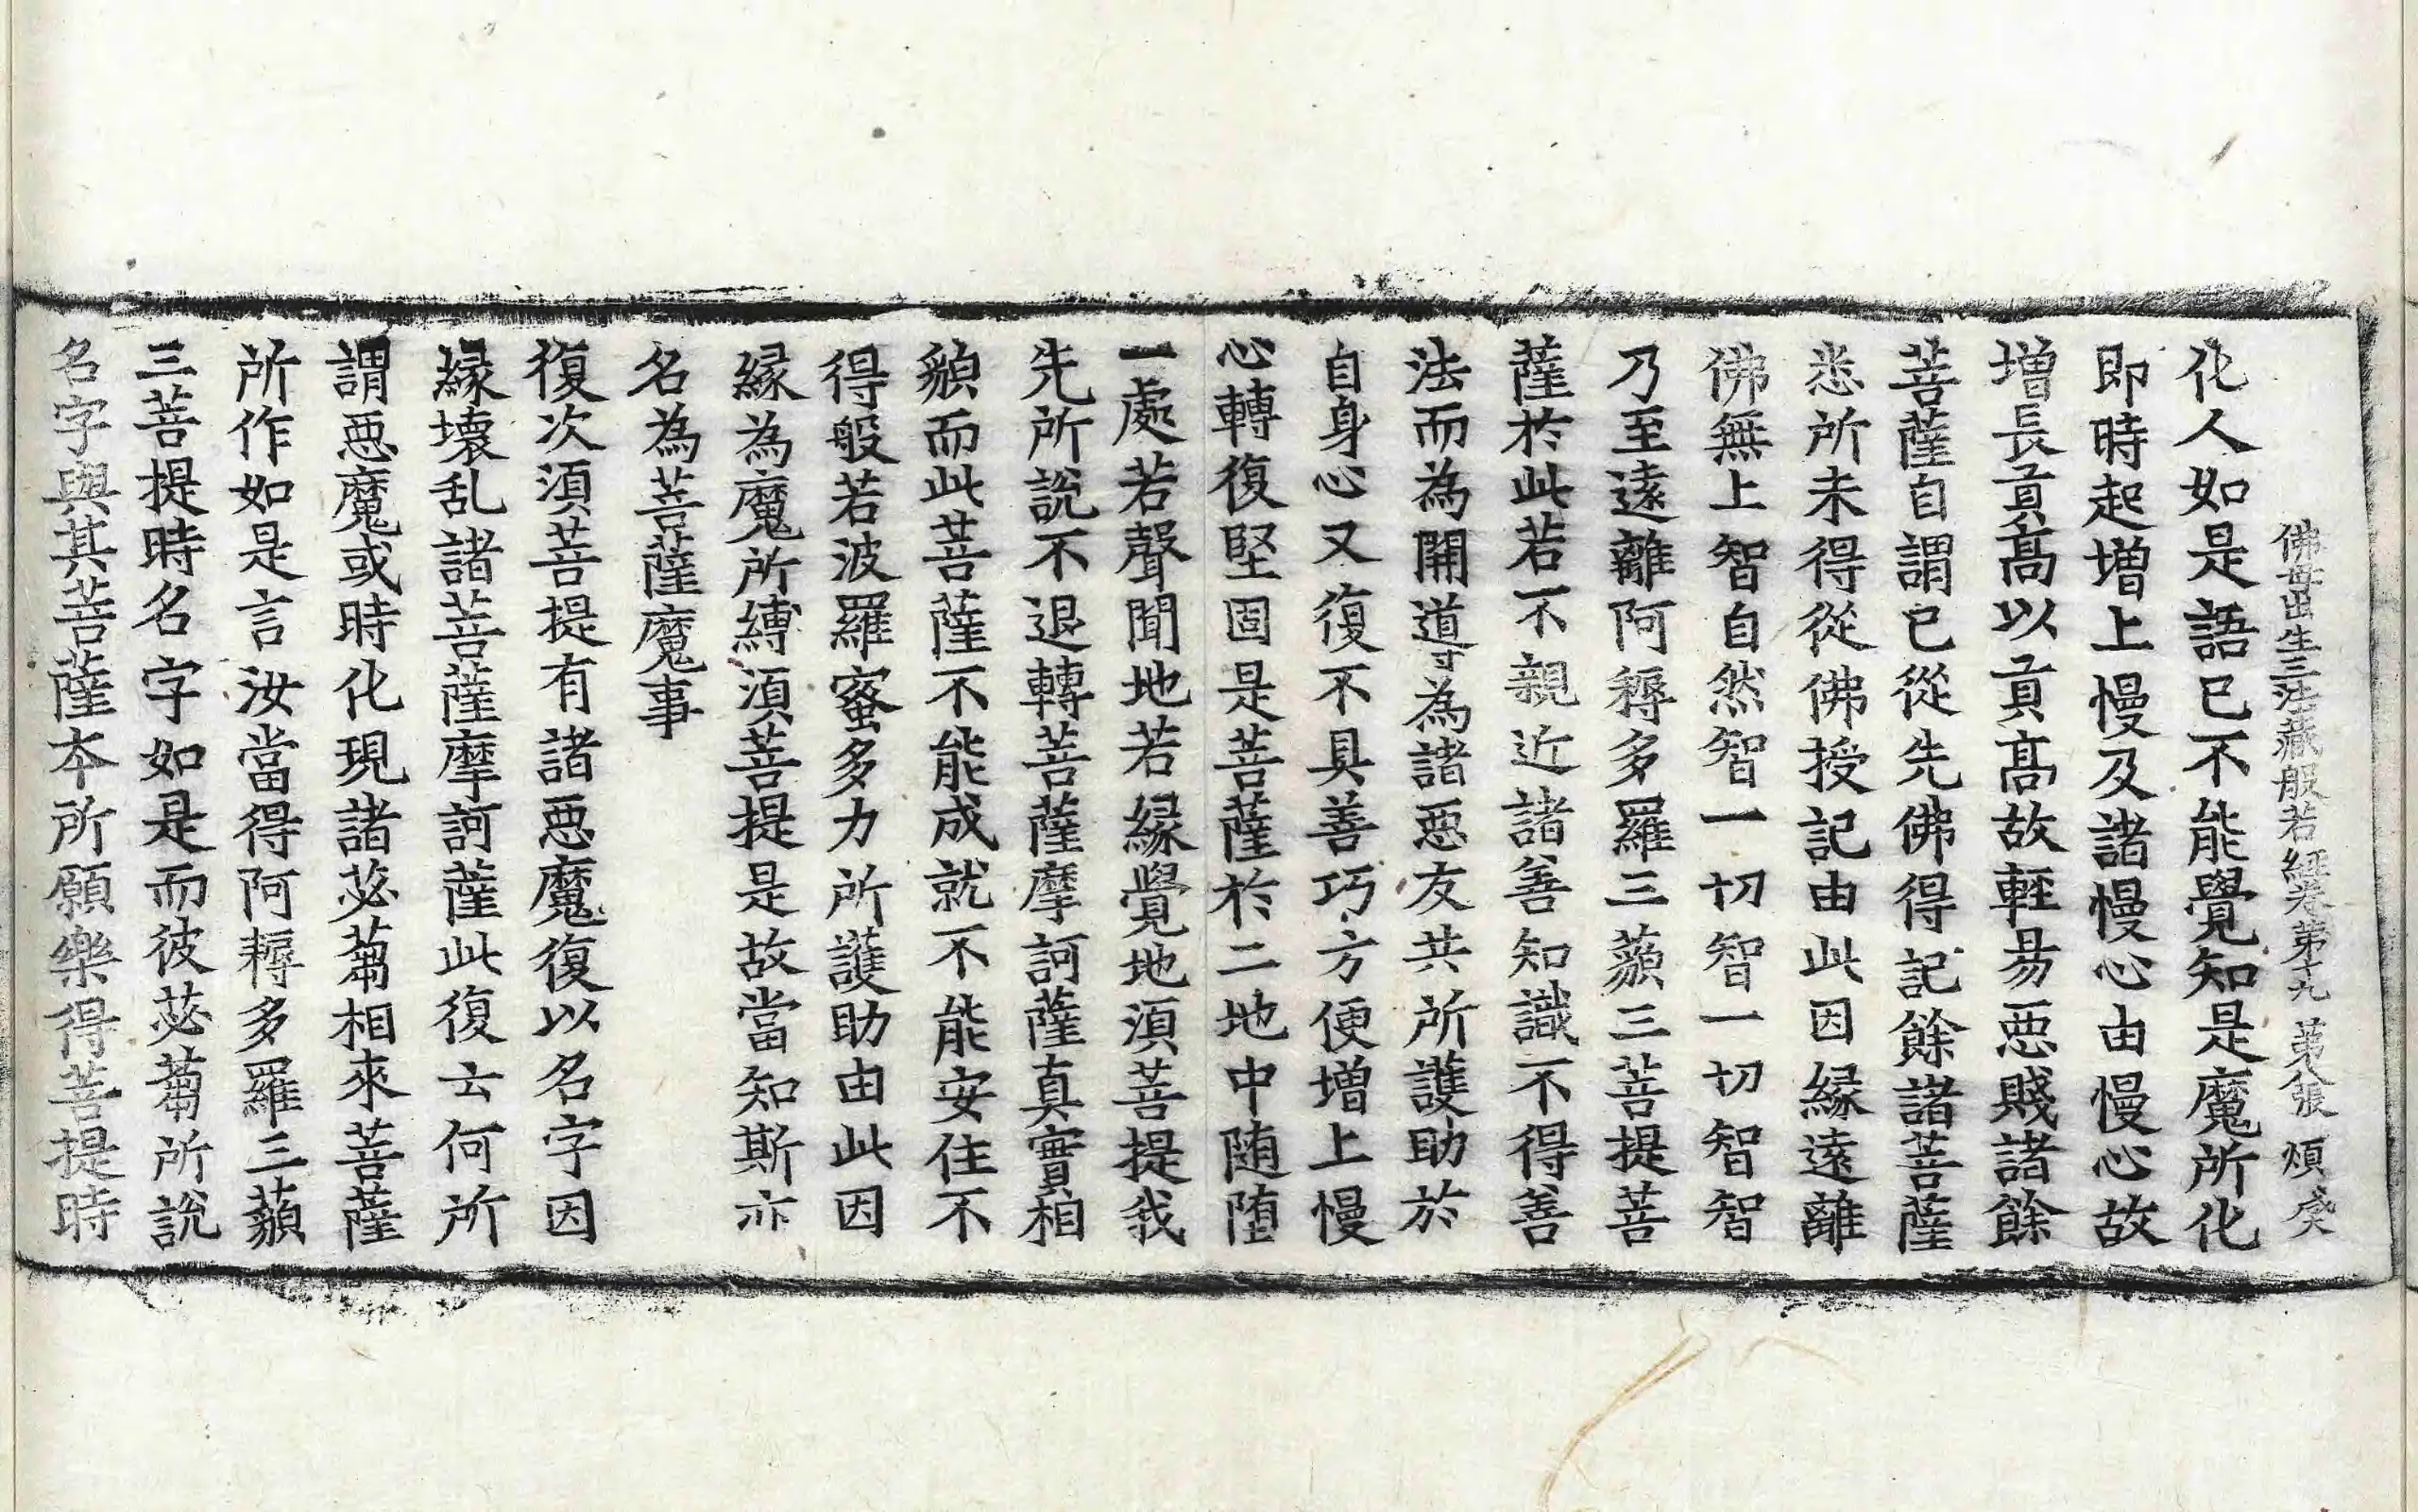 佛母出生三法藏般若經卷第十九 第八張 煩癸
化人如是語已不能覺知是魔所化
即時起增上慢及諸慢心由慢心故
增長貢高以貢高故輕易惡賤諸餘
菩薩自謂已從先佛得記餘諸菩薩
悉所未得從佛授記由此因緣遠離
佛無上智自然智一切智一切智智
乃至遠離阿耨多羅三藐三菩提菩
薩於此若不親近諸善知識不得善
法而為開導為諸惡友共所護助於
自身心又復不具善巧方便增上慢
心轉復堅固是菩薩於二地中随墮
一處若聲聞地若緣覺地須菩提我
先所說不退轉菩薩摩訶薩真實相
貌而此菩薩不能成就不能安住不
得般若波羅蜜多力所護助由此因
緣為魔所縛須菩提是故當知斯亦
名為菩薩魔事
復次須菩提有諸惡魔復以名字因
緣壞乱諸菩薩摩訶薩此復云何所
謂惡魔或時化現諸苾蒭相來菩薩
所作如是言汝當得阿耨多羅三藐
三菩提時名字如是而彼苾蒭所說
名字與其菩薩本所願樂得菩提時